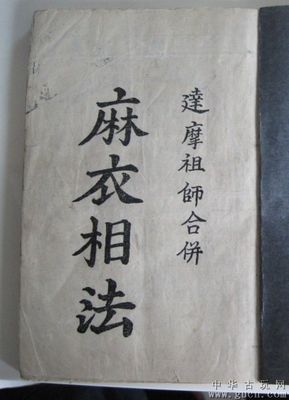 達摩祖師合併
麻衣相法
中华古玩网
www.gucn.com